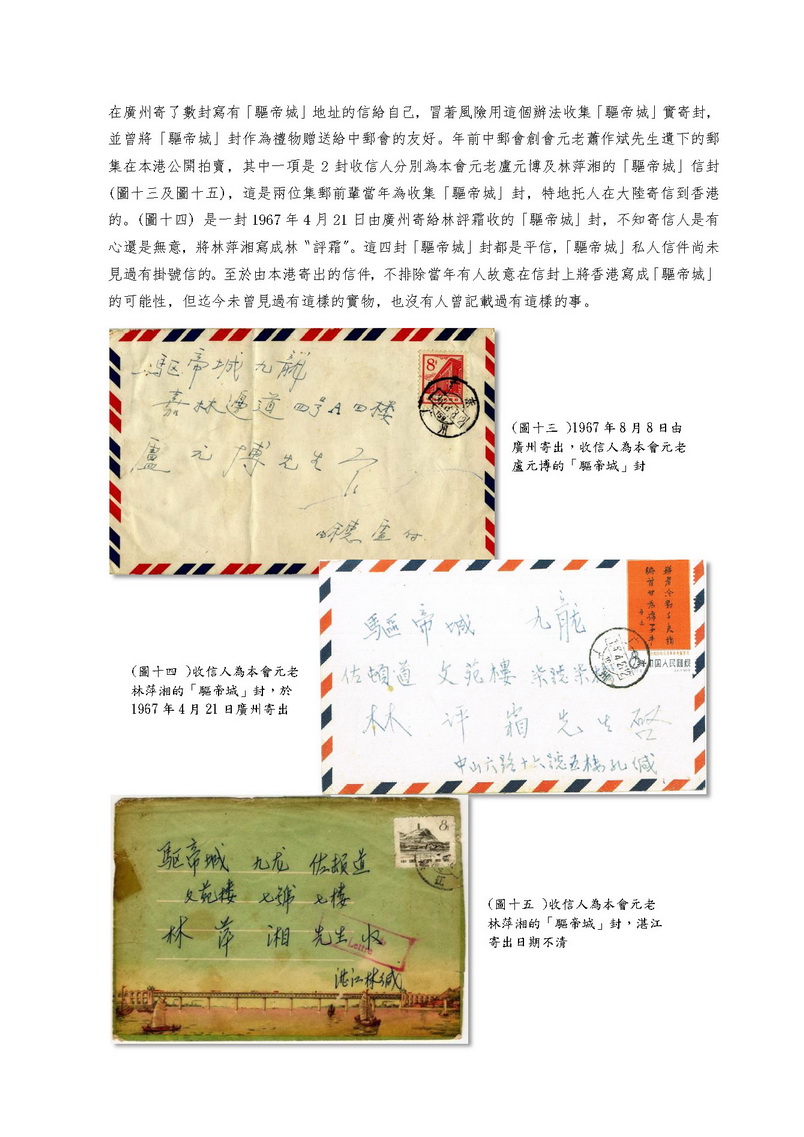 在廣州寄了數封寫有「驅帝城」地址的信給自己，冒著風險用這個辦法收集「驅帝城」實寄封，
並曾將「驅帝城」封作為禮物贈送給中郵會的友好。年前中郵會創會元老蕭作斌先生遺下的郵
集在本港公開拍賣，其中一項是 2 封收信人分別為本會元老盧元博及林萍湘的「驅帝城」信封
(圖十三及圖十五)，這是兩位集郵前輩當年為收集「驅帝城」封，特地托人在大陸寄信到香港
的。(圖十四) 是一封 1967 年 4 月 21 日由廣州寄給林評霜收的「驅帝城」封，不知寄信人是有
心還是無意，將林萍湘寫成林〝評霜〞。這四封「驅帝城」封都是平信，「驅帝城」私人信件尚未
見過有掛號信的。至於由本港寄出的信件，不排除當年有人故意在信封上將香港寫成「驅帝城」
的可能性，但迄今未曾見過有這樣的實物，也沒有人曾記載過有這樣的事。
驅帝城九龍
8
嘉林邊道 四号A 四樓
盧元博先生
(圖十三 )1967 年 8 月 8 日由
廣州寄出，收信人為本會元老
盧元博的「驅帝城」封
驅帝城 九龍
佐頓道 文苑樓 柒號柒
中国人民邮政
林評霜先生啓
中山六路十六號五樓孔緘
(圖十四 )收信人為本會元老
林萍湘的「驅帝城」封，於
1967 年 4 月 21 日廣州寄出
8
驅帝城 九龙 佐頓道
文苑楼 七號 七楼
林萍湘先生收
Lettre
湛江林緘
(圖十五 )收信人為本會元老
林萍湘的「驅帝城」封，湛江
寄出日期不清